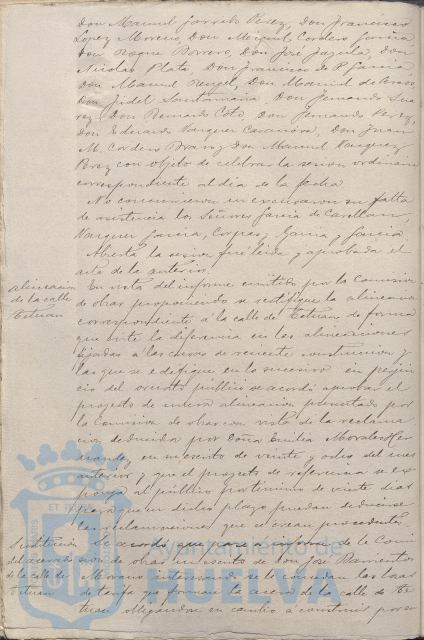 Don Manuel Jarrete Perez, Don Francisco
Lopez Moreno, Don Miguel Cordero Garcia
Don Roque Borrero, Don José Jazula, Don
Nicolas Plata, Don Francisco de P. Garcia,
Don Manuel Rengel, Don Manuel de
Don Fidel Santamaria, Don Fernando Sua
rez, Don Bernardo Coto, Don Fernando Perez,
Don Eduardo Vazquez Casanova, Don Juan
M. Cordero Don Manuel Vazquez
Perez con objeto de celebrar la sesion ordinaria
correspondiente al dia de la fecha.
No concurrieron ni escusaron su falta
de asistencia los Señores Garcia de Castellan,
Vazquez Garcia, Garcia y Garcia
Abierta la sesion fué leida y aprobada el
acta de la anterior.
alineacion
de la calle
Tetuan
En vista del informe emitido por la Comision
de obras proponiendo se rectifique la alineacion
correspondiente á la calle de Tetuan de forma
que evite la diferencia en las alineaciones
fijadas a las casas de reciente construccion y
las que se edifique en lo sucesivo en prejui
cio del ornato público se acordó aprobar el
proyecto de nueva alineacion presentado por
la Comision de obras con vista de la reclama
cion deducida por Doña Emilia Morales Her
nandez en escrito de veinte y ocho del mes
anterior y que el proyecto de referencia se ex
ponga al público por término de veinte dias
para que en dicho plazo puedan deducirse
las reclamaciones que se crean procedentes
Sustitucion
del acerado
de la calle de
Tetuan
Se acordó que con informe de la Comi
sion de obras un escrito de Don José Barrientos
Moreno interesando se le concedan las losas
de tarifa que forman la acera de la calle de Te
tuan obligandose en cambio á construir por su
Ayuntamiento de
HUELVA